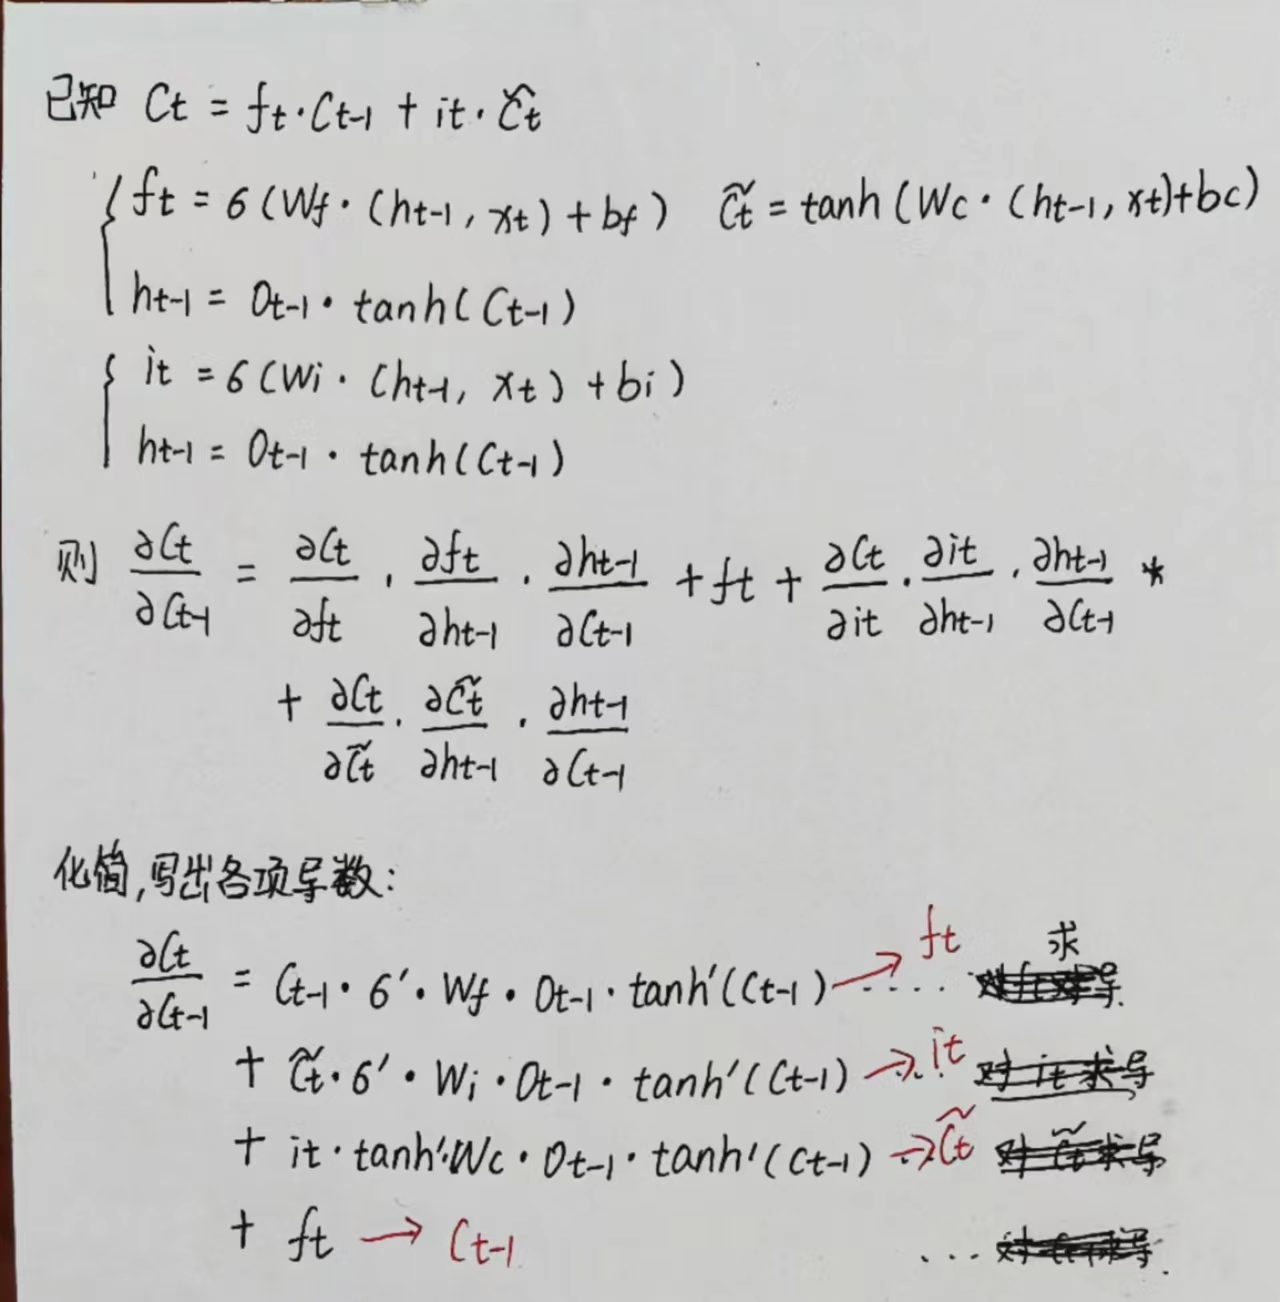 已知 Ct = ft·Ct-1 + it·C̃t
ft = 6(Wf·(ht-1, xt)+bf) C̃t = tanh(Wc·(ht-1, xt)+bc)
ht-1 = Ot-1·tanh(Ct-1)
it = 6(Wi·(ht-1, xt)+bi)
ht-1 = Ot-1·tanh(Ct-1)
则 ∂Ct/∂Ct-1 = ∂Ct/∂ft · ∂ft/∂ht-1 · ∂ht-1/∂Ct-1 + ft + ∂Ct/∂it · ∂it/∂ht-1 · ∂ht-1/∂Ct-1 *
+ ∂Ct/∂C̃t · ∂C̃t/∂ht-1 · ∂ht-1/∂Ct-1
化简,写出各项导数:
∂Ct/∂Ct-1 = Ct-1·6'·Wf·Ot-1·tanh'(Ct-1) → ft ..... 求
+ C̃t·6'·Wi·Ot-1·tanh'(Ct-1) → it 对it求导
+ it·tanh'·Wc·Ot-1·tanh'(Ct-1) → C̃t 对C̃t求导
+ ft → Ct-1 ...